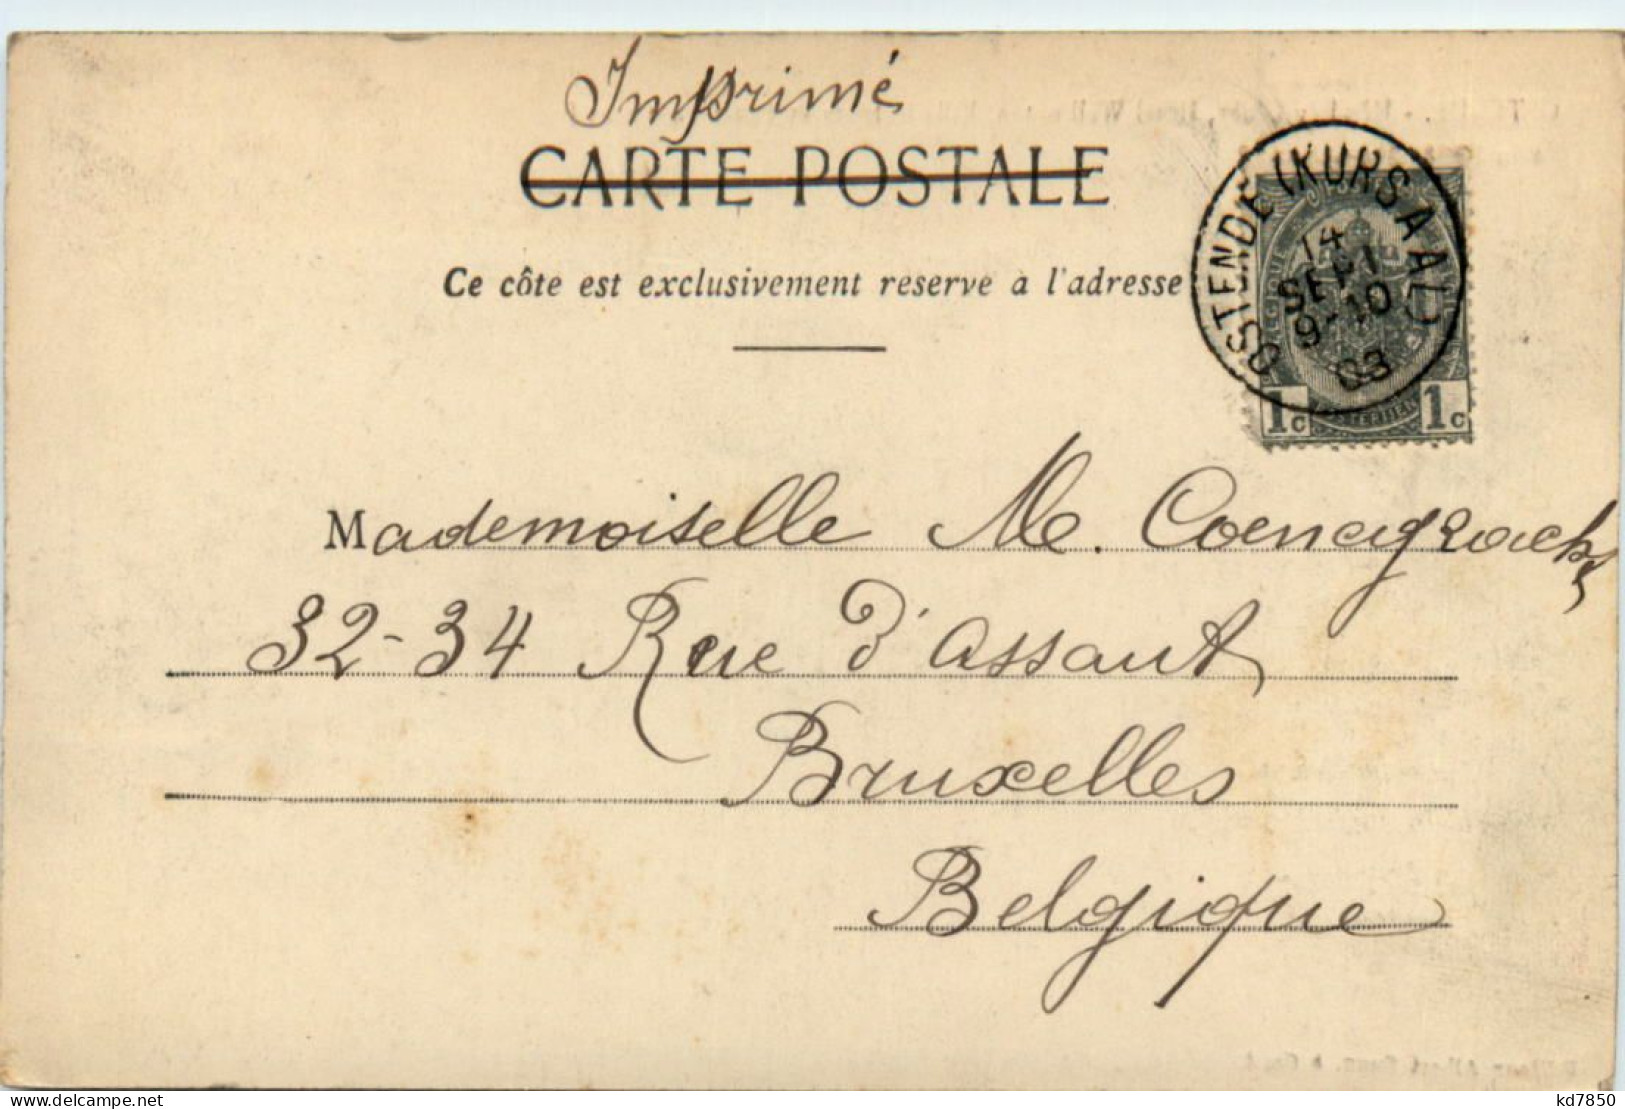 Imprimé
CARTE POSTALE
Ce côte est exclusivement reserve à l'adresse
OSTENDE (KURSAAL)
14
SEPT
9-10
03
1c 1c
Mademoiselle M.
32-34 Rue d'Assaut
Bruxelles
Belgique
kd7850